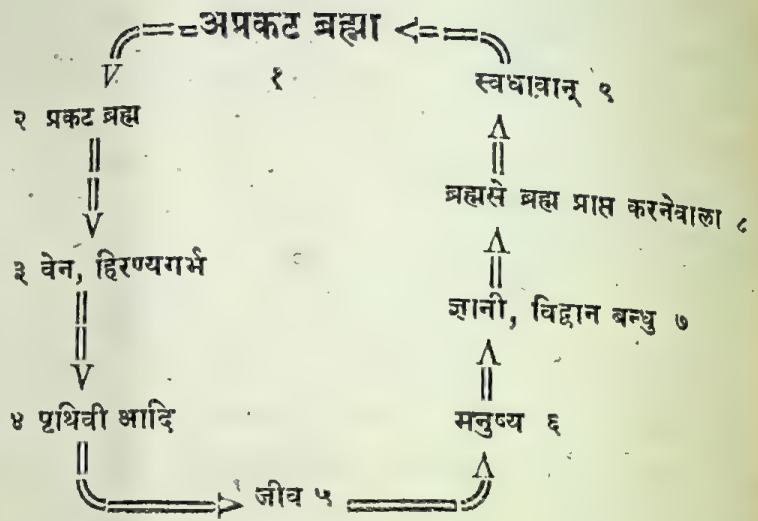 अप्रकट ब्रह्मा
१
२ प्रकट ब्रह्म
३ वेन, हिरण्यगर्भ
४ पृथिवी आदि
जीव ५
मनुष्य ६
ज्ञानी, विद्वान बन्धु ७
ब्रह्मसे ब्रह्म प्राप्त करनेवाला ८
स्वधावान् ९